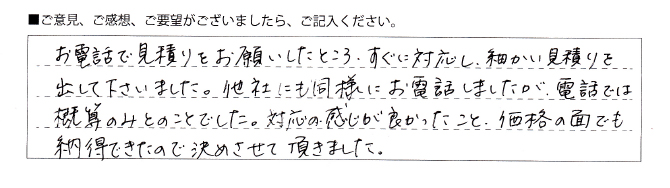 ■ご意見、ご感想、ご要望がございましたら、ご記入ください。
お電話で見積りをお願いしたところ、すぐに対応し、細かい見積りを
出して下さいました。他社にも同様にお電話しましたが、電話では
概算のみとのことでした。対応の感じが良かったこと、価格の面でも
納得できたので決めさせて頂きました。